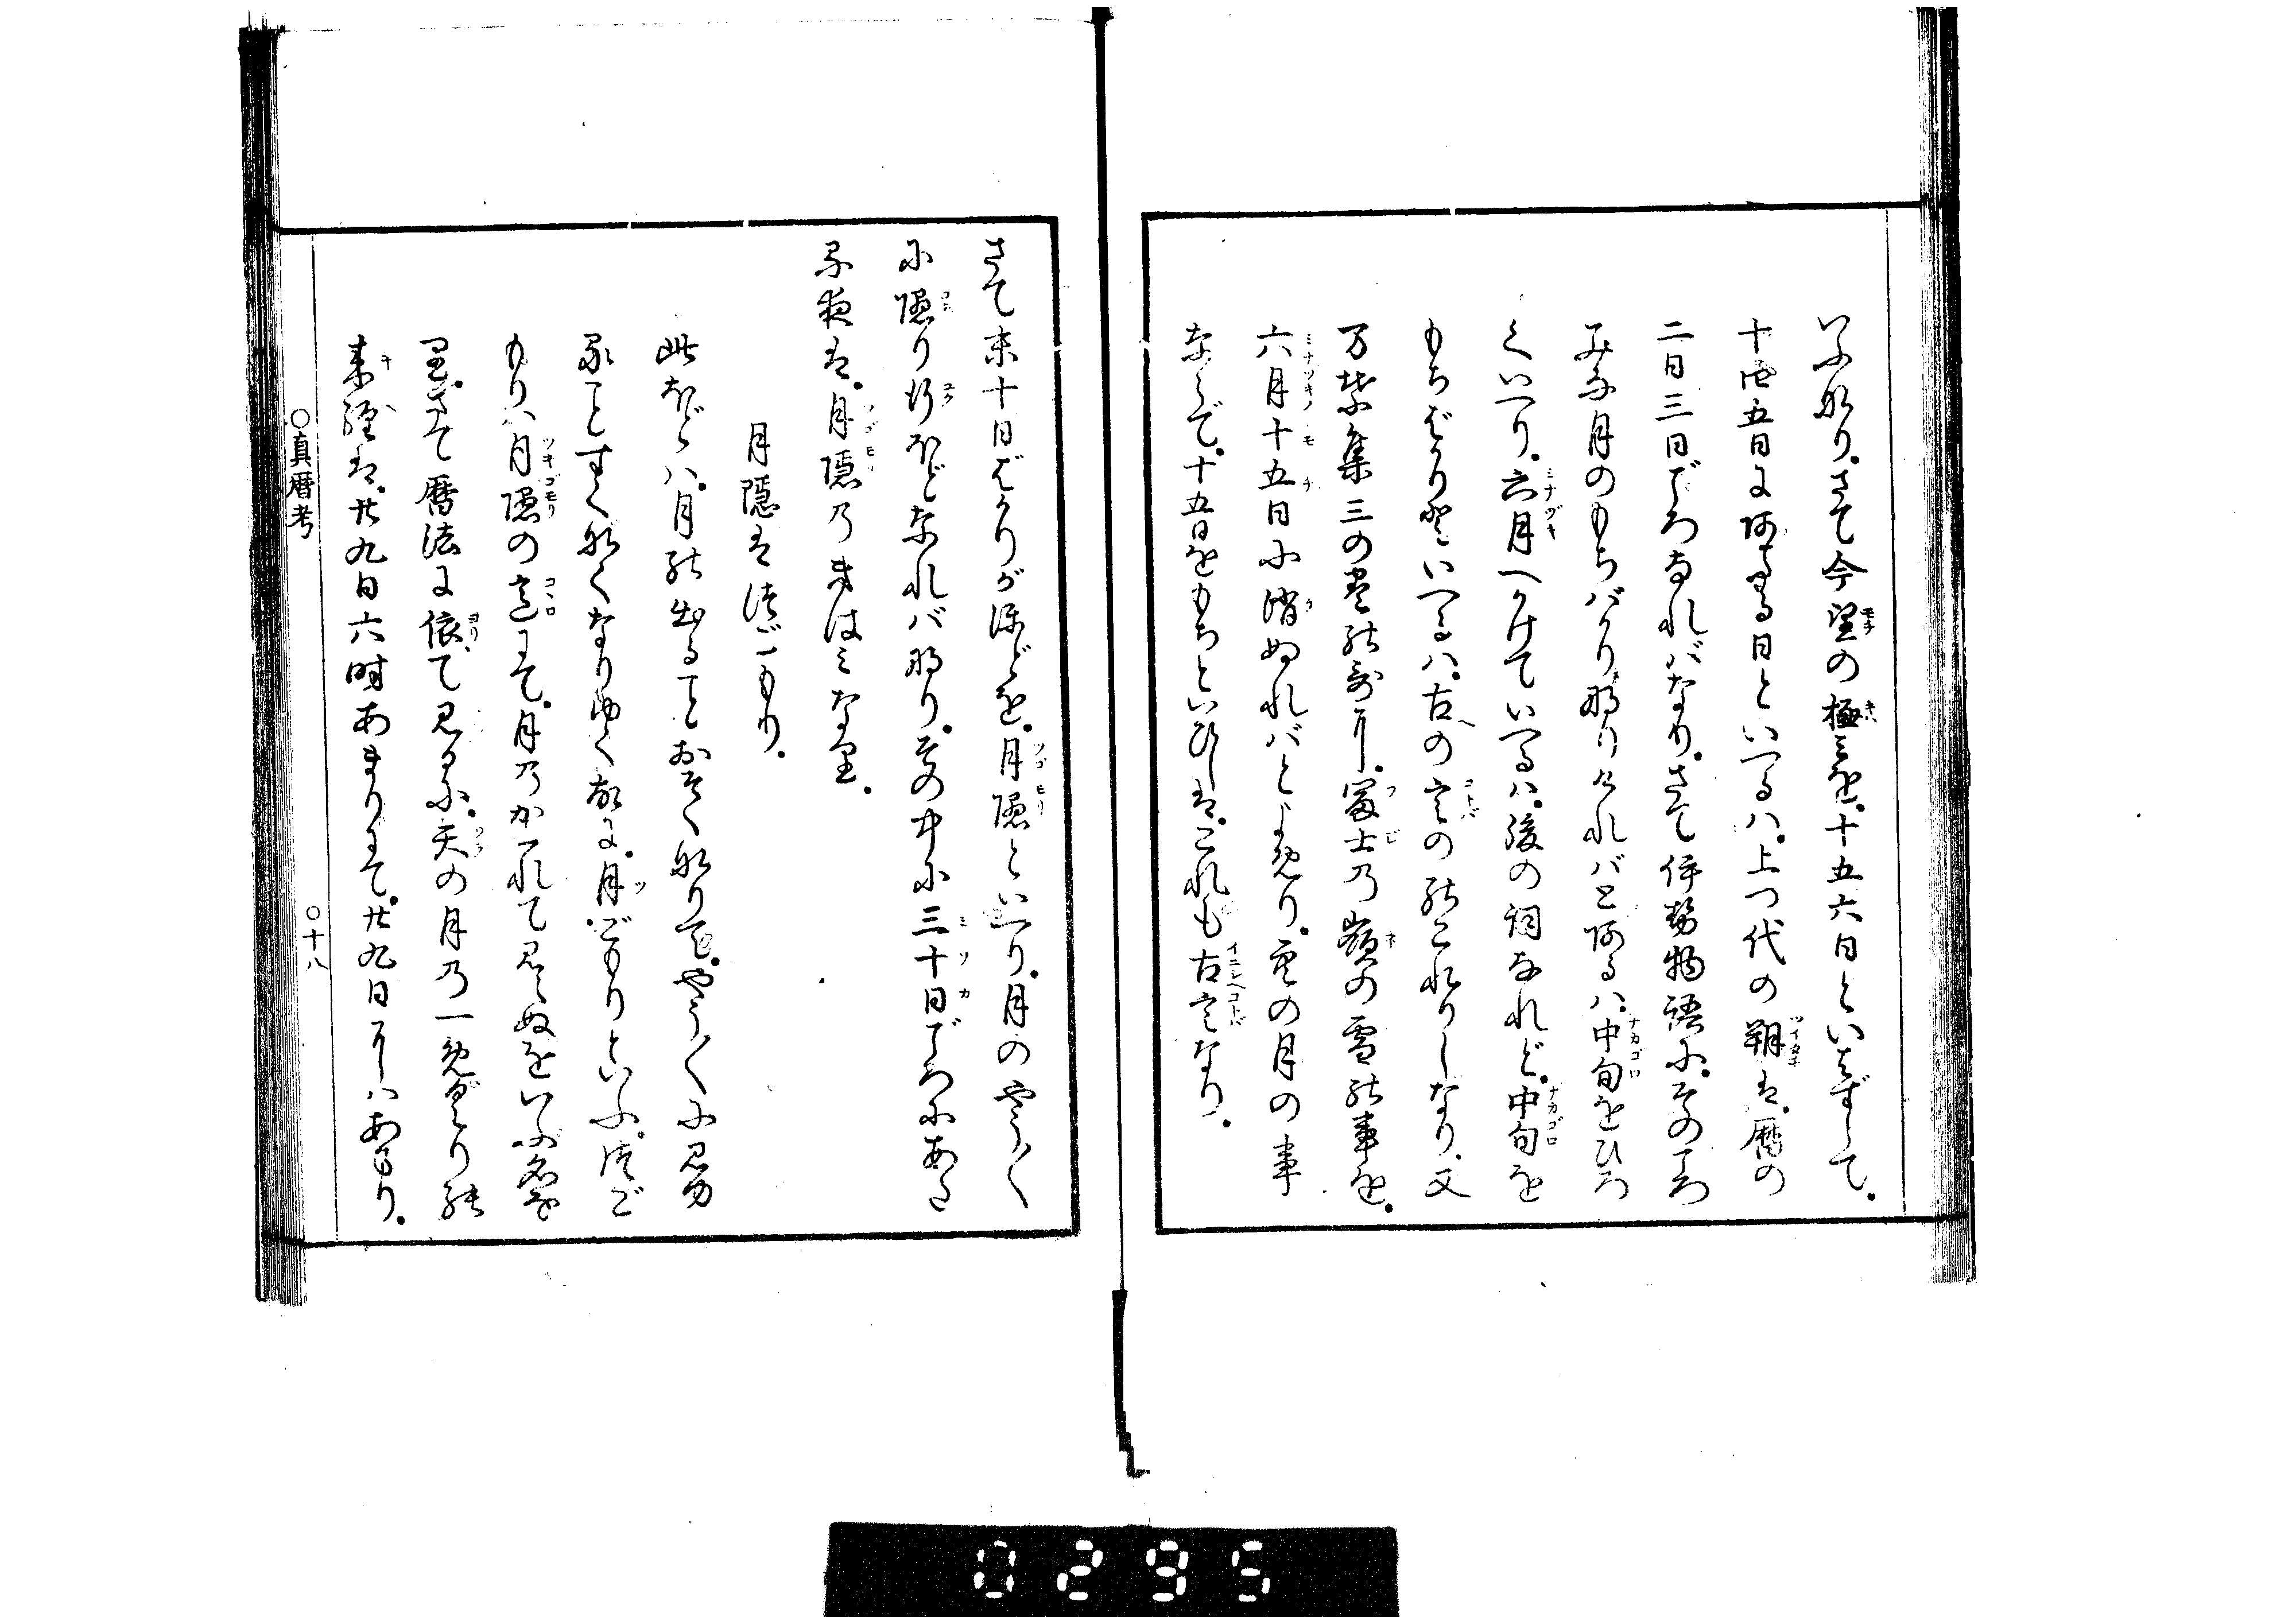 いふ也．さて今望の極みを．十五六日といはずして．
十四五日にあたる日といへるは．上つ代の朔は．暦の
二日三日ごろなればなり．さて伊勢物語に．そのころ
みな月のもちばかり也ければとあるは．中旬をひろ
くいへり．六月へかけていへるは．後の詞なれど．中旬を
もちばかりといへるは．古への言ののこれりしなり．又
万葉集三の巻の哥に．富士乃嶺の雪の事を．
六月十五日に消ぬればとよめり．雪の月の事
ならで．十五日をもちといひしは．これも古言なり．
さて末十日ばかりがほどを．月隠といへり．月のやう〳〵
に隠り行ほどなれば也．その中に三十日ごろにあた
る夜は．月隠乃きはみなり．
月隠はつごもり．
此ほどは．月の出ることおそくなりて．やう〳〵に見ゆ
ることすくなくなりゆく故に．月ごもりといふ．つご
もりは月隠の意にて．月乃かくれて見えぬをいふ名な
り．さて暦法に依て見るに．天の月乃一めぐりの
来経は．廿九日六時あまりにて．廿九日にはあまり．
○真暦考
○十八
0295